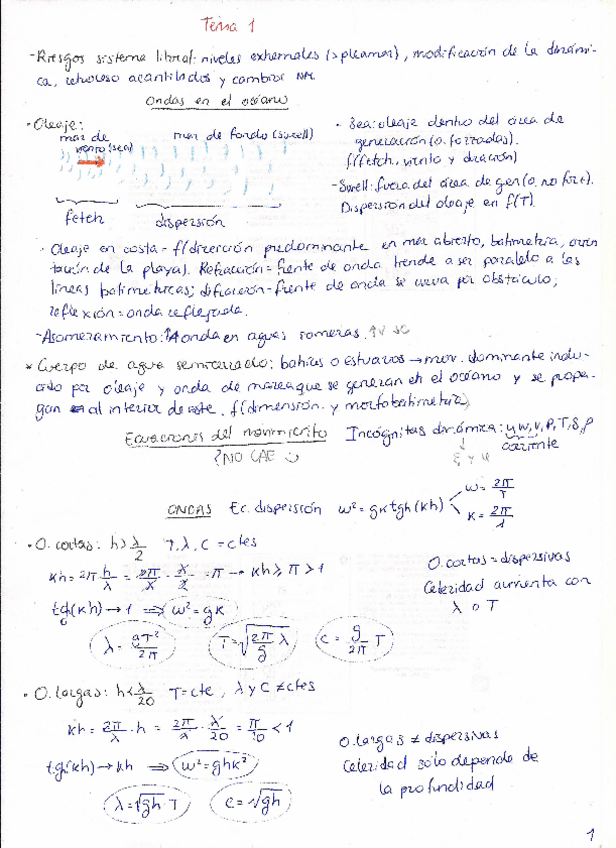 Tema 1
-Riesgos sistema litoral: niveles extremales (>pleamar), modificación de la dinámi-
ca, retroceso acantilados y cambios NM.
Ondas en el océano
· Oleaje:
mar de viento (sea)
mar de fondo (swell)
fetch
dispersión
- Sea: oleaje dentro del área de
generación (o. forzadas).
f(fetch, viento y duración)
- Swell: fuera del área de gen (o. no forz).
Dispersión del oleaje en f(T).
· Oleaje en costa - f(dirección predominante en mar abierto, batimetría, orien
tación de la playa). Refracción = frente de onda tiende a ser paralelo a las
líneas batimétricas; difracción - frente de onda se curva por obstáculo;
reflexión = onda reflejada.
- Asomeramiento: ↑A onda en aguas someras.
* Cuerpo de agua semicerrado: bahías o estuarios → mov. dominante indu-
cido por oleaje y onda de marea que se generan en el océano y se propa-
gan al interior de este. f(dimensión y morfobatimetría)
Ecuaciones del movimiento
Incógnitas dinámica: u, w, v, P, T, S, ρ
corriente
¿NO CAE
ONDAS
Ec. dispersión ω² = gktgh(kh)
ω = 2π/T
k = 2π/λ
· O. cortas: h > λ/2 T, λ, C = ctes
kh = 2π h/λ = 2π/λ · λ/2 = π → kh ≥ π > 1
tg(kh) → 1 ⟹ ω² = gk
λ = gT²/2π
T = √(2π/g λ)
C = g/2π T
O. cortas = dispersivas
Celeridad aumenta con
λ o T
· O. largas: h < λ/20 T = cte, λ y C ≠ ctes
kh = 2π/λ · h = 2π/λ · λ/20 = π/10 < 1
tgh(kh) → kh ⟹ ω² = ghk²
λ = √gh · T
C = √gh
O. largas ≠ dispersivas
Celeridad sólo depende de
la profundidad
1